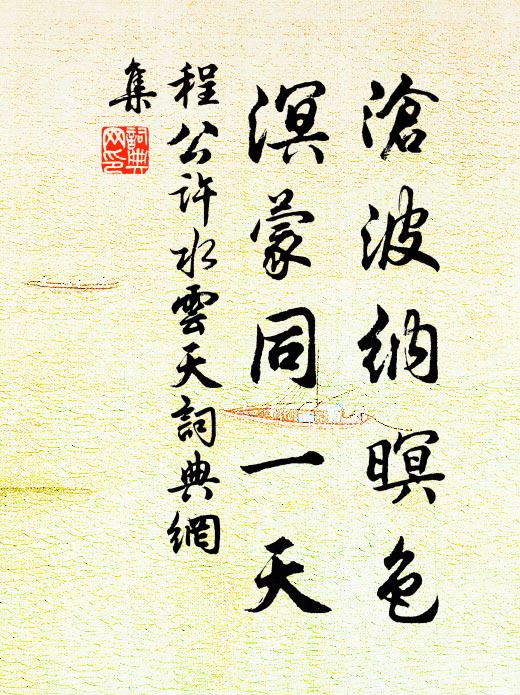 滄波納暝色
溟蒙同一天
程公許水雲天詞典網
集
詞典網印